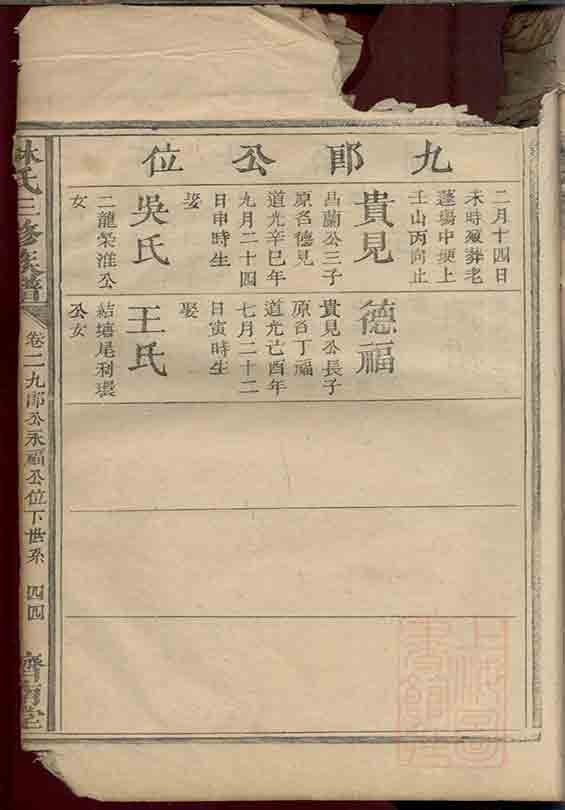 九郎公位
二月十四日
未時歿葬老
蓬塲中埂上
壬山丙向止
貴見
昌蘭公三子
原名德見
道光辛巳年
九月二十四
日申時生
娶
吳氏
二龍榮淮公
女
德福
貴見公長子
原名丁福
道光己酉年
七月二十二
日寅時生
娶
王氏
結塘尾利環
公女
林氏三修族譜
卷二九郎公永福公位下世系
四四
濟南堂